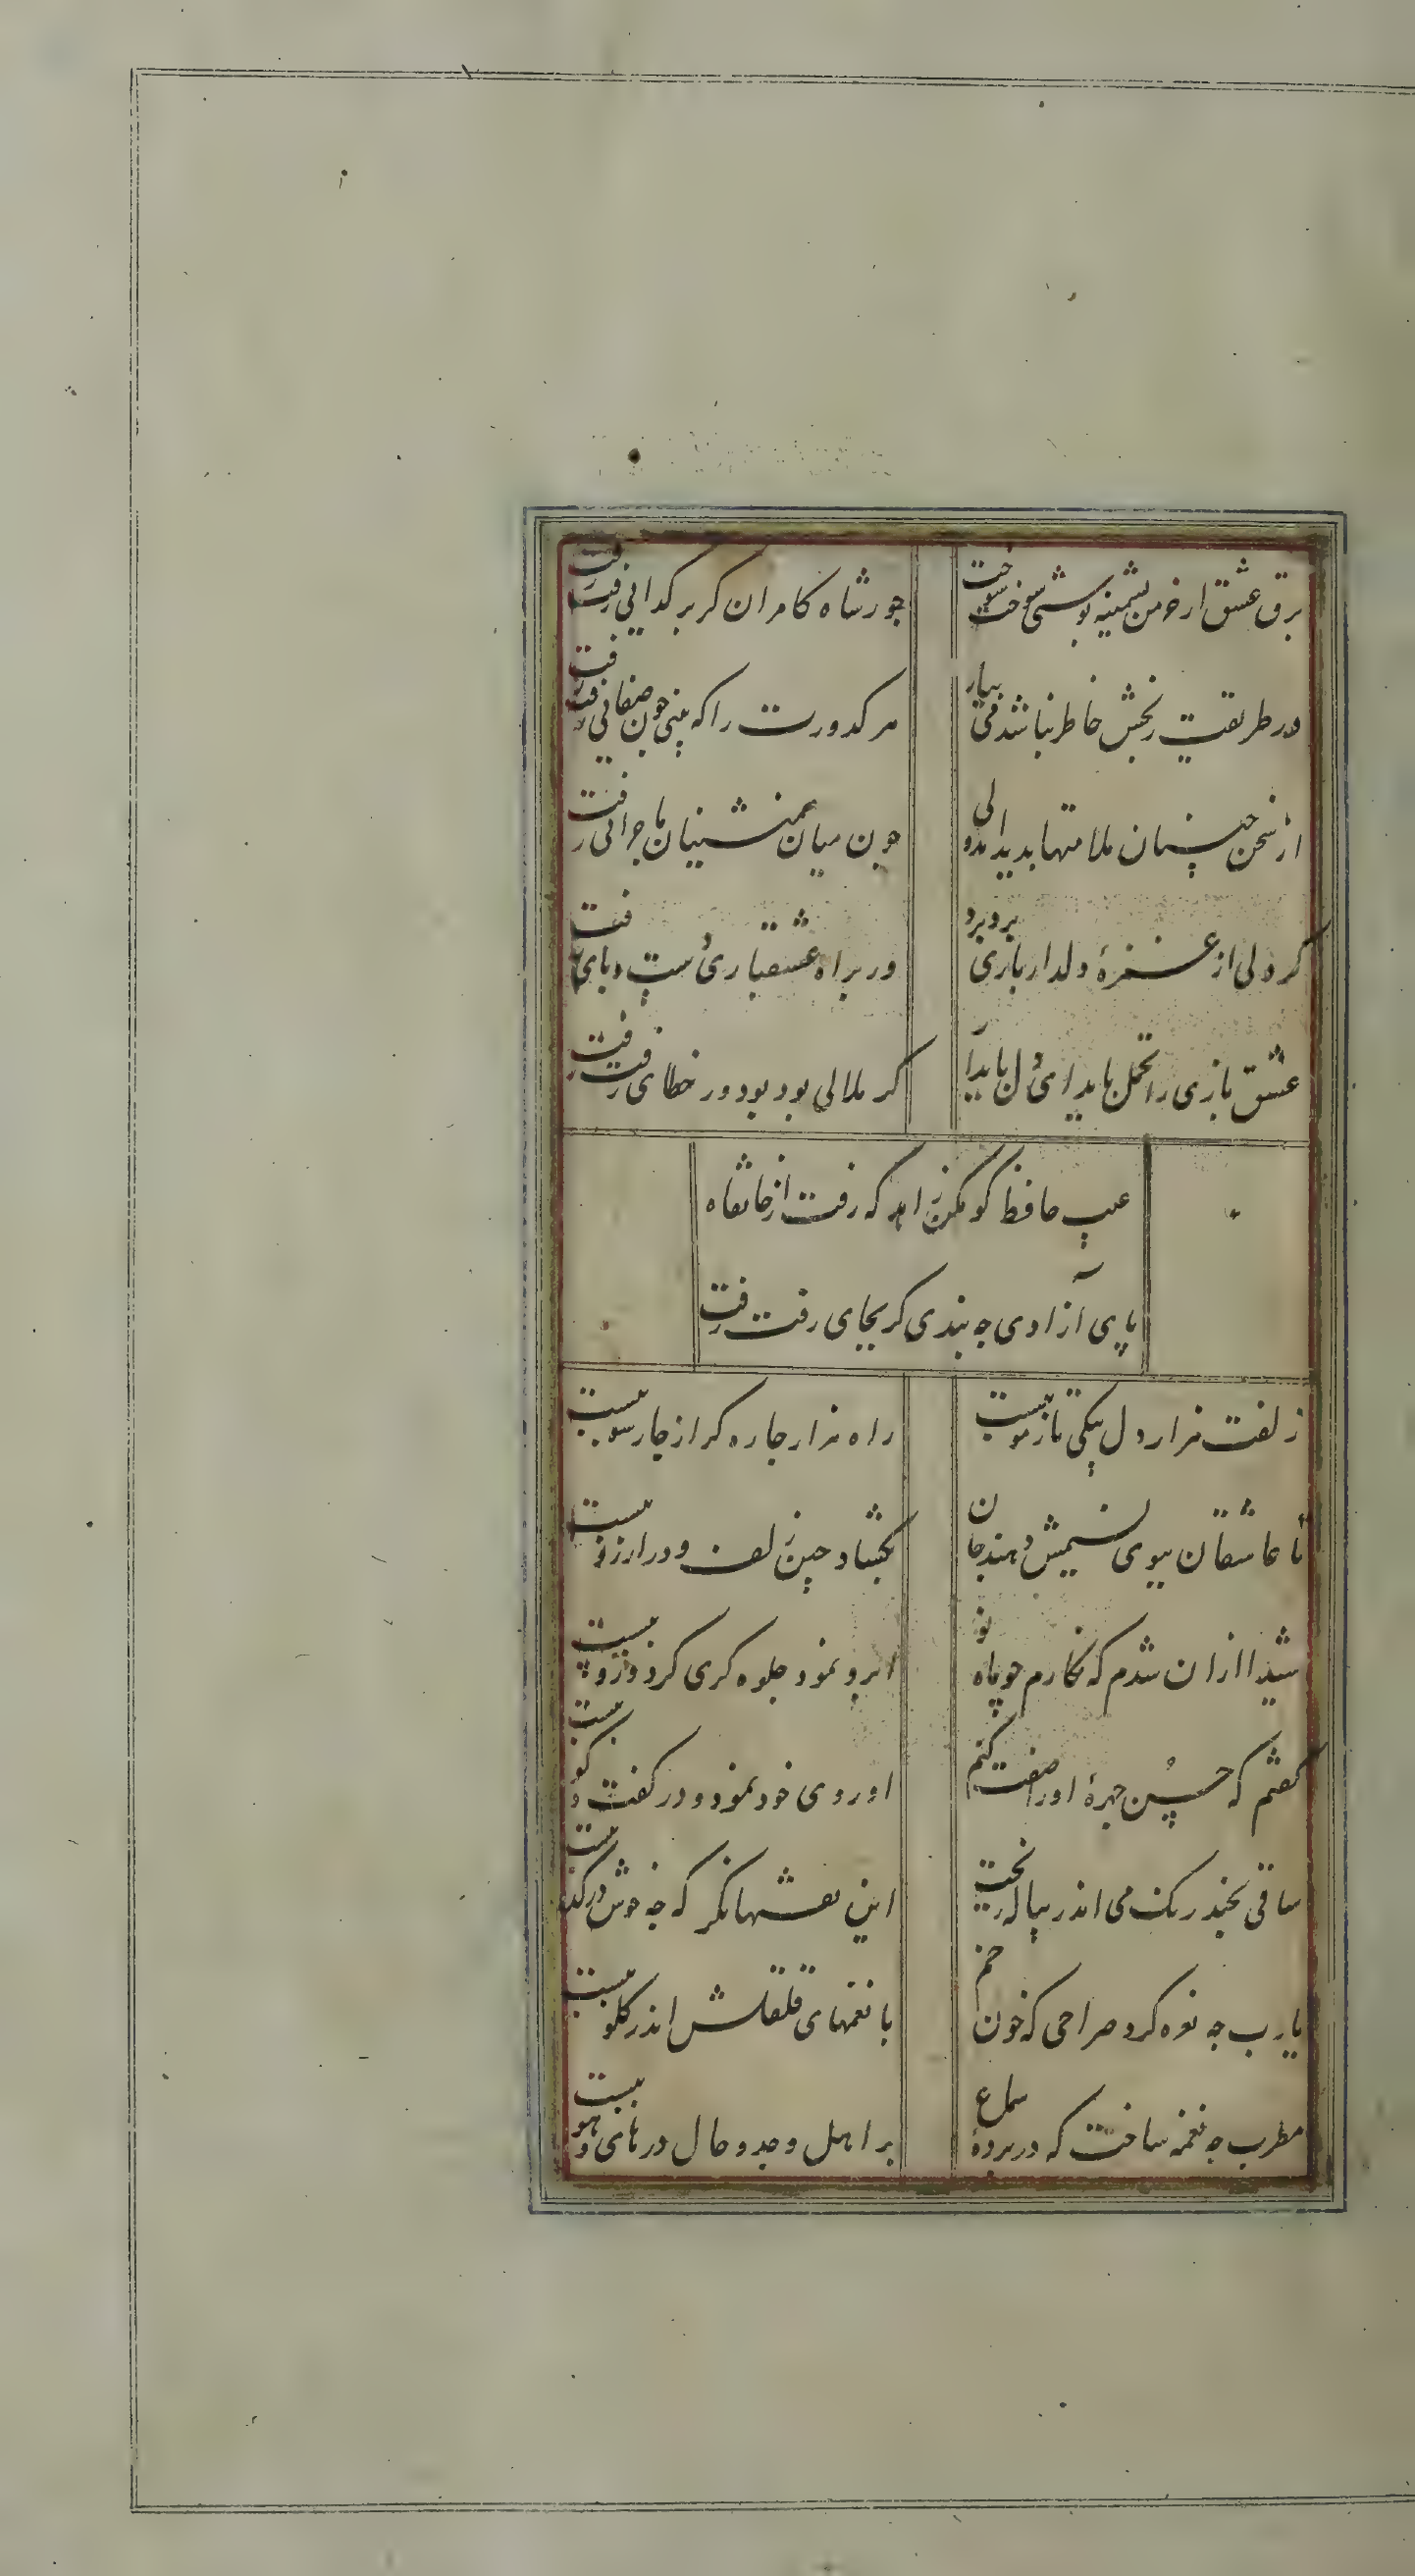 برق عشق ار خرمن پشمینه پوشی سوخت سوخت
جور شاه کامران کر بر کدائی رفت رفت
در طریقت رنجش خاطر نباشد می بیار
هر کدورت را که بینی چون صفائی رفت رفت
از سخن چینان ملامتها بدید امد ولی
چون میان همنشینان ماجرائی رفت
کر دلی از غمزهٔ دلدار باری برد برد
ور براه عشقبازی
عشق بازی را تحمل باید ای دل پایدار
کر ملالی بود بود ور خطای رفت رفت
عیب حافظ کو مکن زاهد که رفت از خانقاه
پای آزادی چه بندی کر بجای رفت رفت
زلفت هزار دل بیکی تار مو ببست
راه هزار چاره کر از چار سو ببست
تا عاشقان ببوی نسیمش دهند جان
بکشاد چین زلف و در ارزو ببست
شیدا ازان شدم که نکارم چو ماه نو
ابرو نمود جلوه کری کرد و رو ببست
گفتم که حسن چهرهٔ او را صفت کنم
او روی خود نمود و در کفت و کو ببست
ساقی بچند رنک می اندر پیاله ریخت
این نقشها نکر که چه خوش در کدو بست
یارب چه نوه کرد صراحی که خون خم
با نغمهای قلقلش اندر کلو ببست
مطرب چه نغمه ساخت که در پردهٔ سماع
بر اهل وجد و حال در های و هو ببست